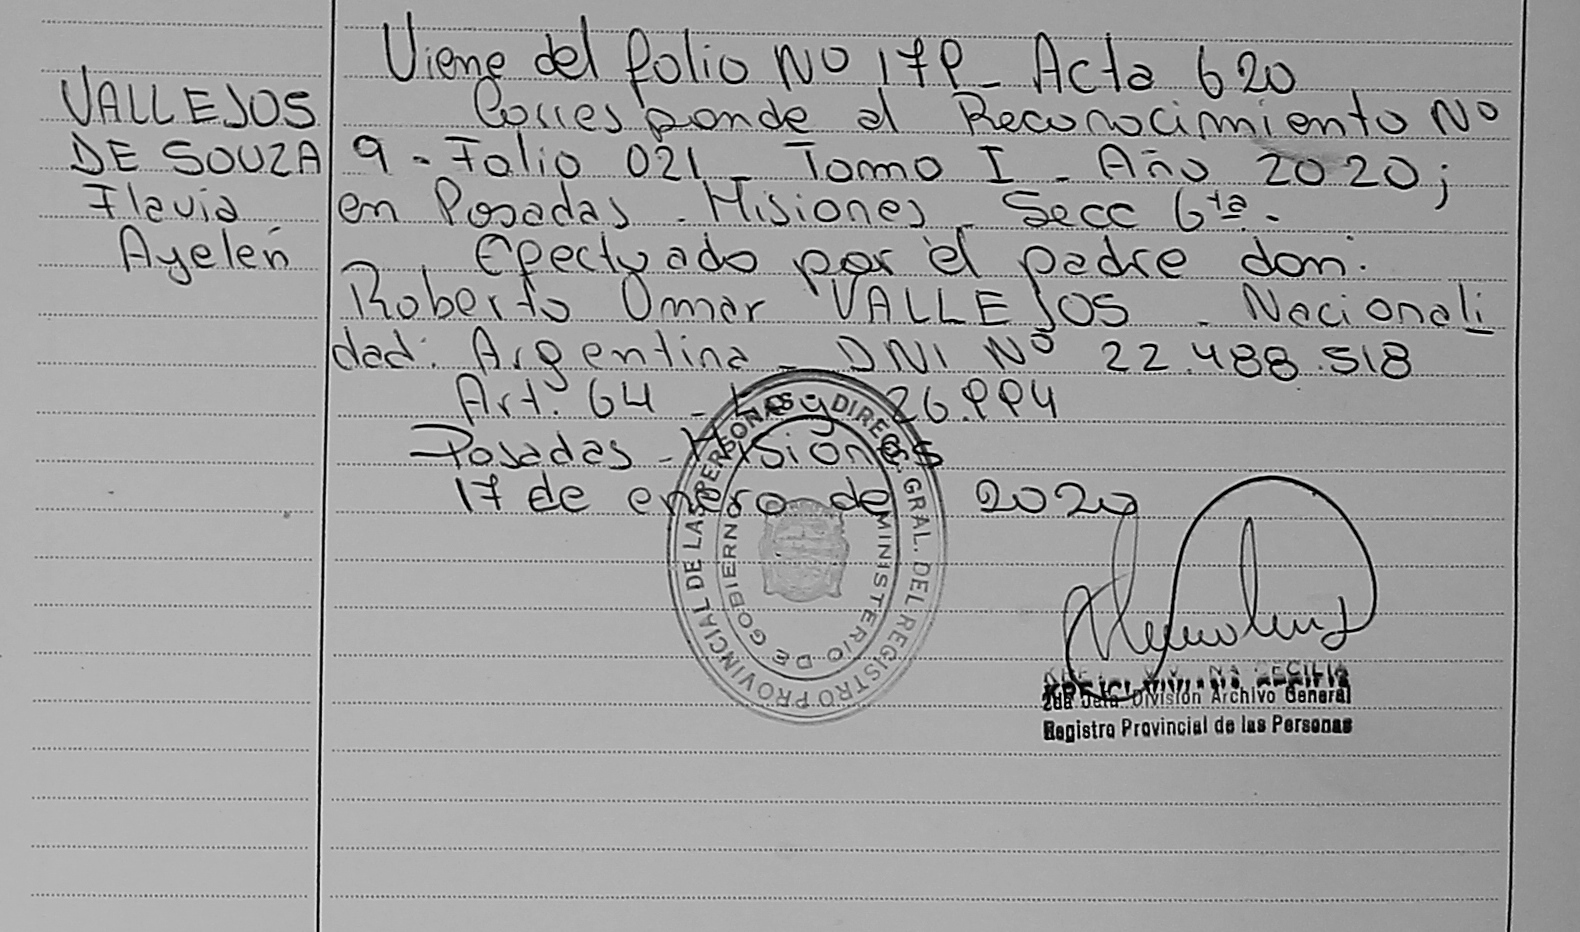 Viene del folio Nº 179_ Acta 620
VALLEJOS
DE SOUZA
Flavia
Ayelén
Corresponde al Reconocimiento Nº
9 - Folio 021_ Tomo I - Año 2020;
en Posadas - Misiones - Secc 6ta.
Efectuado por el padre don:
Roberto Omar VALLEJOS - Nacionali
dad: Argentina - DNI Nº 22.488.518
Art. 64 - Ley 26.994
Posadas - Misiones
17 de enero de 2020
DIREC. GRAL. DEL REGISTRO PROVINCIAL DE LAS PERSONAS
MINISTERIO DE GOBIERNO
VIVIANA CECILIA
2da Jefa División Archivo General
Registro Provincial de las Personas